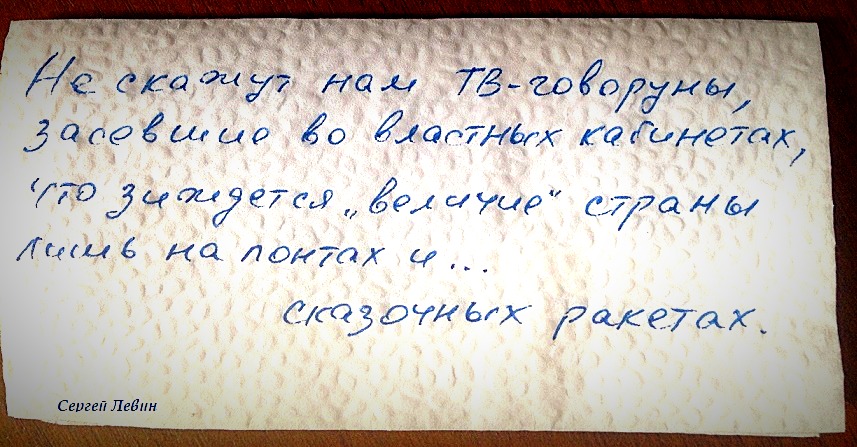 Не скажут нам ТВ-говоруны,
засевшие во властных кабинетах,
что зиждется „величие" страны
лишь на понтах и...
сказочных ракетах.
Сергей Левин